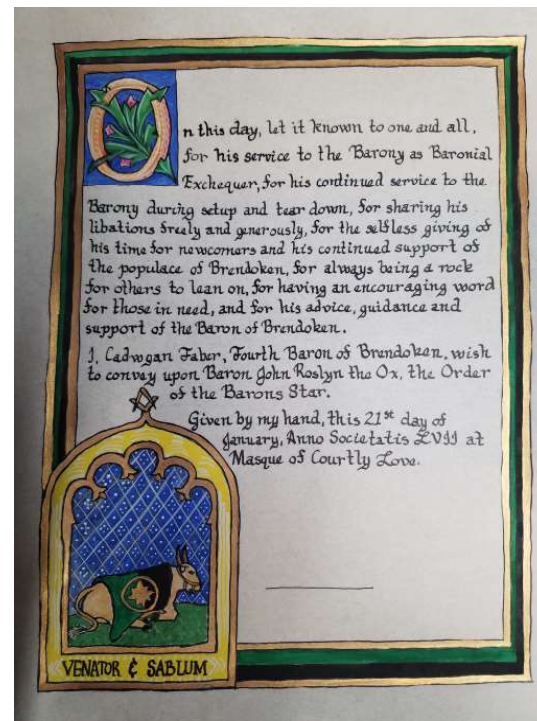 On this day, let it known to one and all,
for his service to the Barony as Baronial
Exchequer, for his continued service to the
Barony during setup and tear down, for sharing his
libations freely and generously, for the selfless giving of
his time for newcomers and his continued support of
the populace of Brendoken, for always being a rock
for others to lean on, for having an encouraging word
for those in need, and for his advice, guidance and
support of the Baron of Brendoken.
I, Cadwgan Faber, Fourth Baron of Brendoken, wish
to convey upon Baron John Roslyn the Ox, the Order
of the Barons Star.
Given by my hand, this 21st day of
January, Anno Societatis LVII at
Masque of Courtly Love.
VENATOR & SABLUM